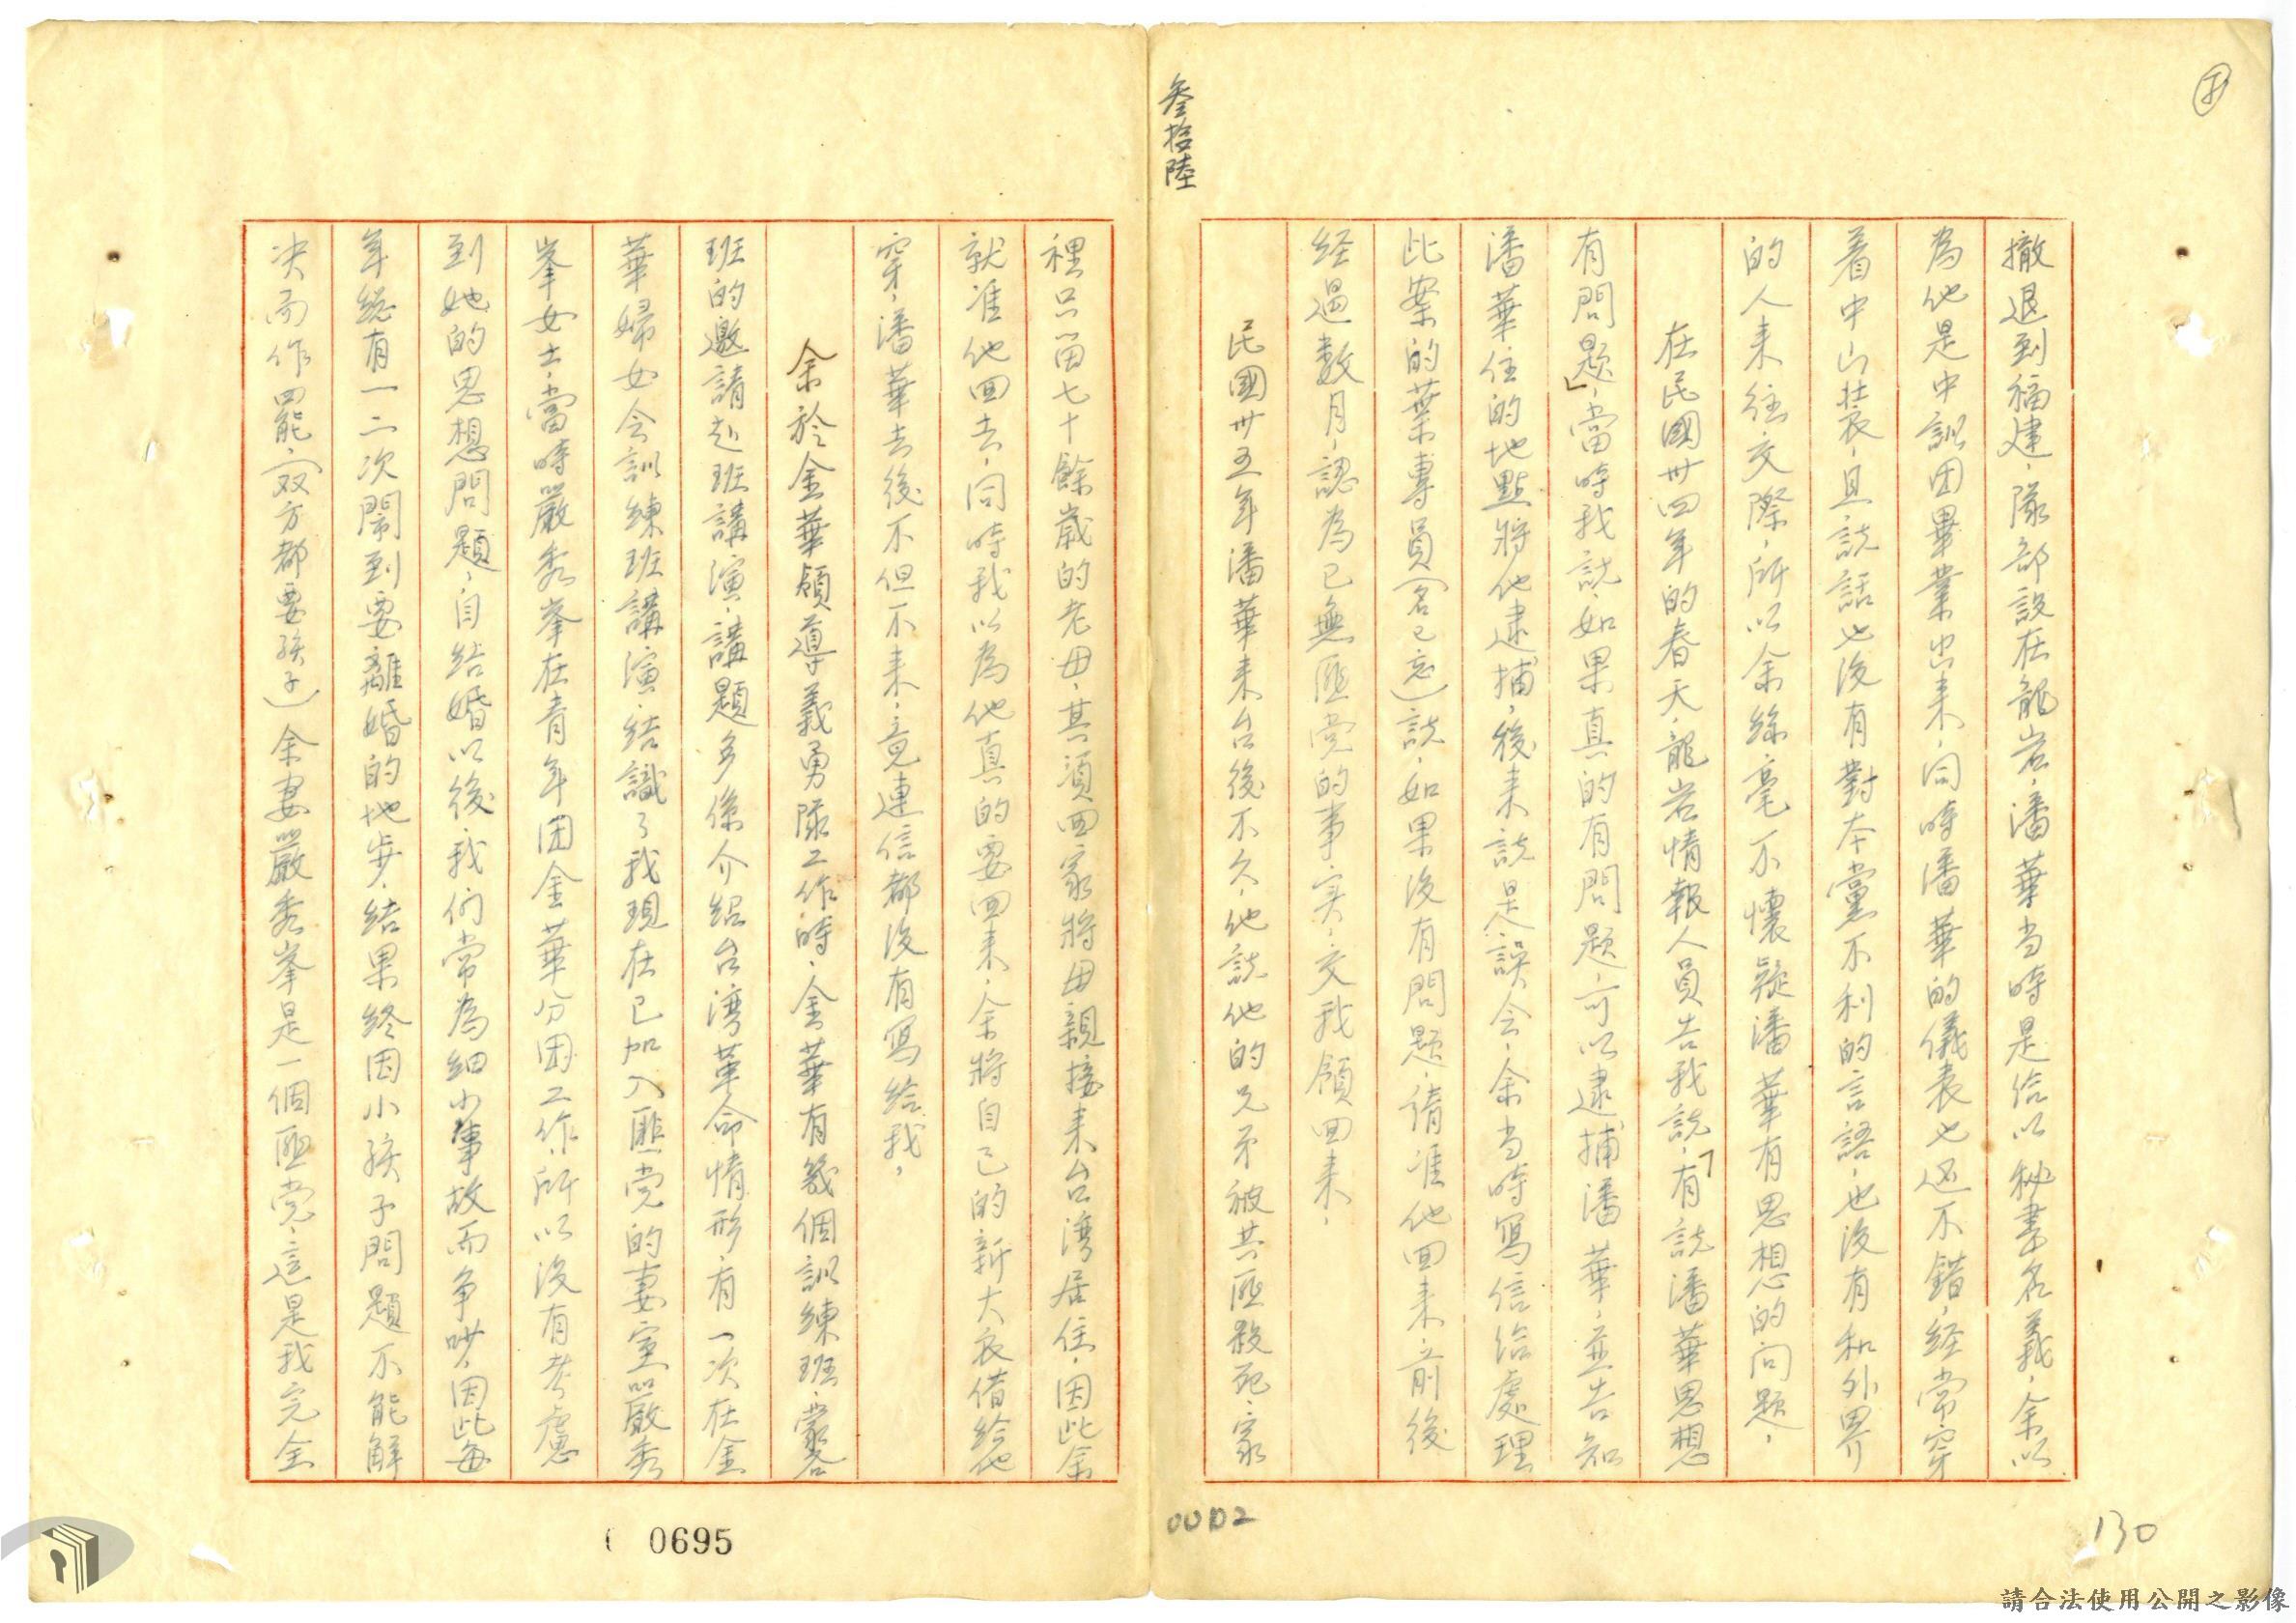 叁拾陸
撤退到福建，隊部設在龍岩，潘華当時是给以秘書名義，余以
為他是中訓团畢業出来，同時潘華的儀表也还不錯，経常穿
着中山装，且説話也没有對本黨不利的言語，也没有和外界
的人来往交際，所以余絲毫不懷疑潘華有思想的问題，
在民國卅四年的春天，龍岩情報人員告我説，「有説潘華思想
有問题」，當時我説，如果真的有問题，可以逮捕潘華，並告知
潘華住的地點將他逮捕，後来説是誤会，余当時寫信给處理
此案的葉專員（名已忘）説，如果没有問题，请准他回来，前後
经過数月，認為已無匪党的事実，交我領回来，
民國卅五年潘華来台後不久，他説他的兄弟被共匪殺死，家
裡只留七十餘歲的老母，其須回家將母親接来台湾居住，因此余
就准他回去，同時我以為他真的要回来，余將自己的新大衣借给他
穿，潘華去後不但不来，竟連信都没有寫给我，
余於金華領導義勇隊工作時，金華有幾個訓練班，蒙各
班的邀請赴班講演，講題多係介绍台湾革命情形，有一次在金
華婦女会訓練班講演，结識了我現在已加入匪党的妻室嚴秀
峯女士，當時嚴秀峯在青年团金華分团工作，所以没有考慮
到她的思想問題，自结婚以後，我们常為細小事故而争吵，因此每
年總有一二次鬧到要離婚的地步，结果終因小孩子問題不能解
决而作罷，（双方都要孩子）余妻嚴秀峯是一個匪党，這是我完全
0695
00D2
130
請合法使用公開之影像